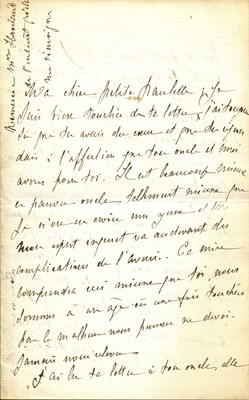 Ma chère petite Paulette, je
suis bien touchée de ta lettre, j'ai toujours
su que tu avais du cœur et que tu
dais à l'affection que ton oncle et moi
avons pour toi. Il est beaucoup mieux
ce pauvre oncle tellement mieux que
je n'ose en croire mes yeux et
mon esprit inquiet va au devant des
complications de l'avenir. Ce mieux
comprendra ceci mieux que toi, nous
sommes à un âge où une fois touchés
par le malheur nous pouvons ne
jamais nous
J'ai lu ta lettre à ton oncle, elle
Remercie Mme
de l'intérêt qu'elle
me témoigne